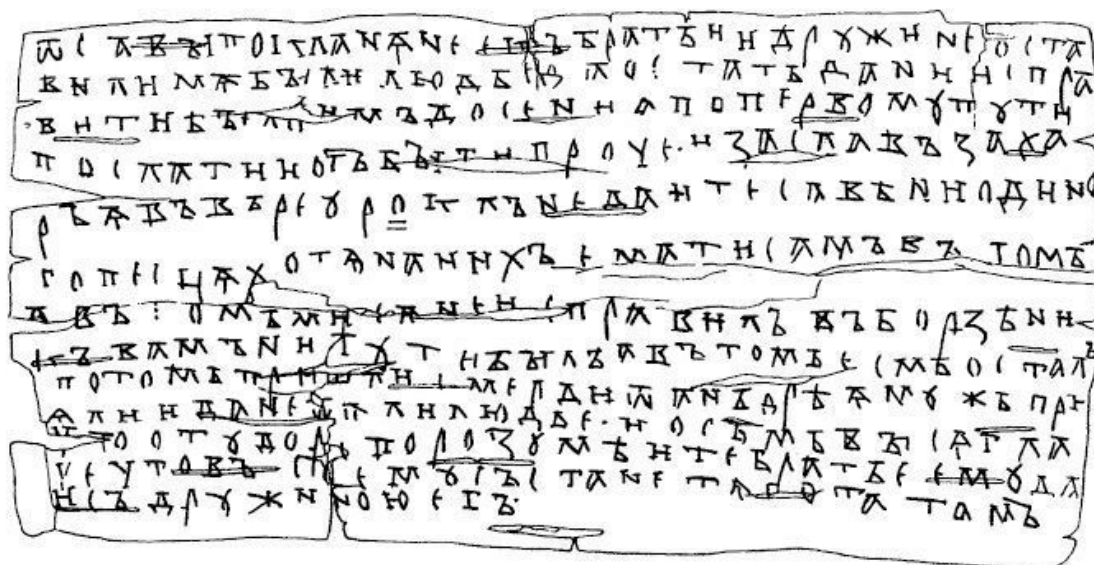 ѿ савъі покланѧнее къ братьи и дрꙋжине оста
вили мѧ бъіли людье а остать дани испра
вити бъіло имъ досени а по первомꙋ пꙋти
послати и отъбъіти прочь и заславъ заха
рьѧ въ вере ꙋроклъ не даите савѣ ни одино
го песцѧ хотѧ на нихъ емати самъ въ томь
а въ томь ми сѧ не исправилъ въборзѣ ни
къ вамъ ни тꙋ ти бъілъ а въ томь есмь осталъ
потомь пришли смерди ѿ анъдрѣѧ мꙋжь при
ѧли и дане ѿѧли людье и осьмь въісѧгла
что о тꙋдоре порозꙋмѣите братье емꙋ да
че ꙋто въ се емꙋ състане тѧгота тамъ
и съ дрꙋжиною егъ